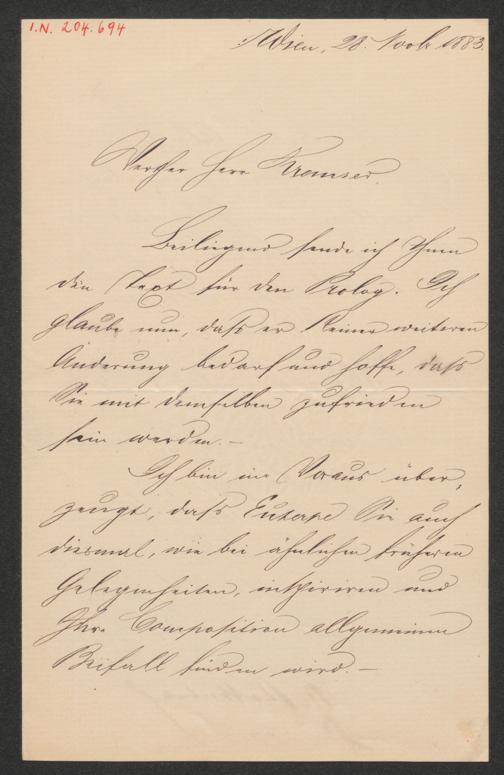 I.N. 204.694
Wien, 28. Novbr 1883.
Werther Herr Kremser.
Beiliegend sende ich Ihnen
den Text für den Prolog. Ich
glaube nun, daß er keiner weiteren
Änderung bedarf und hoffe, daß
Sie mit demselben zufrieden
sein werden. –
Ich bin im Voraus über,
zeugt, daß Euterpe Sie auch
diesmal, wie bei ähnlichen früheren
Gelegenheiten, inspiriren und
Ihre Composition allgemeinen
Beifall finden wird. –